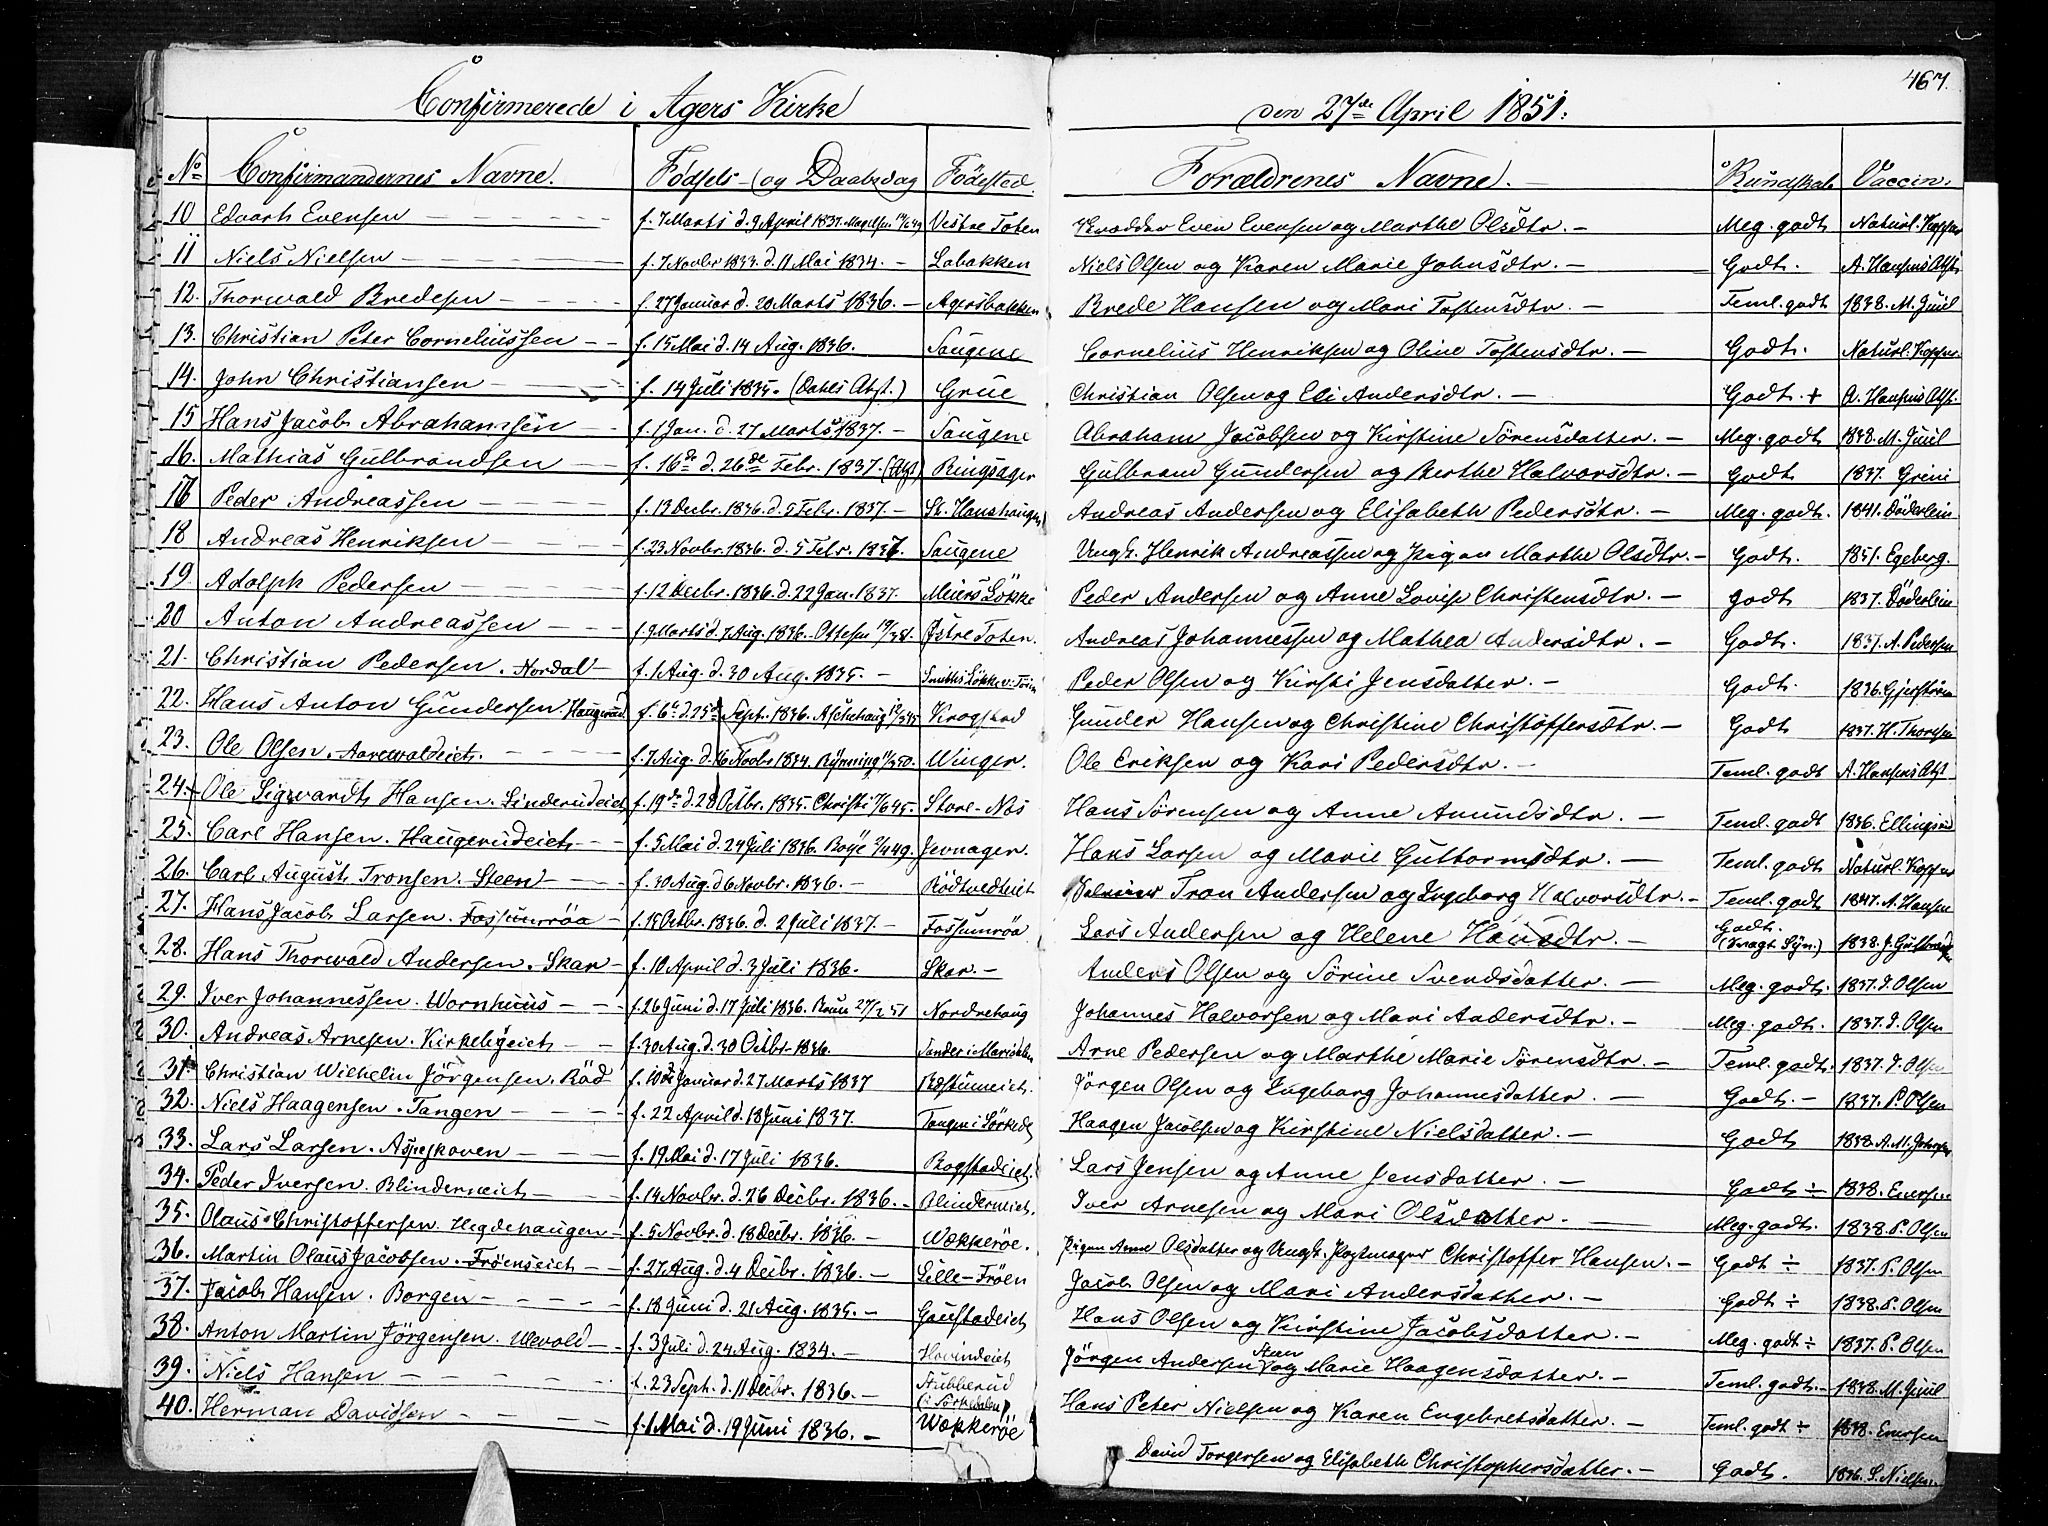 467.
Confirmerede i Agers Kirke den 27de April 1851.
No Confirmandernes Navne. Födsels- og Daabsdag Födested. Forældrenes Navne. Kundskab Vaccin.
10 Edvart Evensen f. 7 Marts d. 9 April 1837. Vestre Toten Even Evensen og Marthe Olsdtr. Meg. godt Naturl. Kopper
11 Niels Nielsen f. 7 Novbr 1833. d. 11 Mai 1834. Labakken Niels Olsen og Karen Marie Johnsdtr. Godt. A. Hansens Atst.
12. Thorwald Bredesen f. 27 Januar d. 20 Marts 1836. Agersbakken Brede Hansen og Mari Tostensdtr. Teml. godt 1838. M. Juul
13. Christian Peter Corneliussen f. 15 Mai d. 14 Aug. 1836. Saugene Cornelius Henriksen og Oline Tostensdtr. Godt. Naturl. Kopper
14. John Christiansen f. 14 Juli 1835. (Dahls Atst.) Grue Christian Olsen og Eli Andersdtr. Godt. + A. Hansens Atst.
15 Hans Jacob Abrahamsen f. 1 Jan. d. 27 Marts 1837. Saugene Abraham Jacobsen og Kirstine Sörensdatter. Meg. godt 1838. M. Juul
16. Mathias Gulbrandsen f. 16de d. 26de Febr. 1837. (Atst) Ringsager Gulbran Gundersen og Berthe Halvorsdtr. Godt 1837. Greni
17 Peder Andreassen f. 13 Decbr. 1836. d. 5 Febr. 1837. St. Hanshaugen Andreas Andersen og Elisabeth Pedersdtr. Meg. godt. 1841. Döderlein
18 Andreas Henriksen f. 23 Novbr. 1836. d. 5 Febr. 1837. Saugene Ungk. Henrik Andreassen og Pigen Marthe Olsdtr. Godt. 1851. Egeberg.
19 Adolph Pedersen f. 12 Decbr. 1836. d. 22 Jan. 1837. Meiers Lökke Peder Andersen og Anne Lovise Christensdtr. godt 1837. Döderlein
20 Anton Andreassen f. 9 Marts d. 7 Aug. 1836. Ottesen Östre Toten. Andreas Johannessen og Mathea Andersdtr. Godt. 1837. A. Pedersen
21. Christian Pedersen. Nordal f. 1 Aug. d. 30 Aug. 1835. Smiths Lökke Peder Olsen og Kirsti Jensdatter. Godt. 1836.
22. Hans Anton Gundersen. Haugerud f. 6te d. 25de Sept. 1836. Aschehoug Krogstad Gunder Hansen og Christine Christoffersdtr. Godt 1837. H. Thoresen
23. Ole Olsen. f. 7 Aug. d. 16 Novbr 1834. Rynning Winger. Ole Eriksen og Kari Pedersdtr. Teml. godt A. Hansens Atst
24. + Ole Sigvardt Hansen. Linderudeiet f. 19de d. 28 Octbr. 1835. Christi Store-Næs Hans Sörensen og Anne Amundsdtr. Teml. godt 1836. Ellingsrud
25. Carl Hansen. Haugerudeiet f. 5 Mai d. 24 Juli 1836. Boye Jevnager. Hans Larsen og Marie Guttormsdtr. Teml. godt Naturl. Kopper
26. Carl August Tronsen. Steen f. 30 Aug. d. 6 Novbr. 1836. Rödtvedteiet Tron Andersen og Ingeborg Halvorsdtr. Teml. godt 1847. A. Hansen
27. Hans Jacob Larsen. Fossumröa f. 15 Octbr. 1836. d. 2 Juli 1837. Fossumröa Lars Andersen og Helene Hansdtr. Godt. (Svagt Syn.) 1838.
28. Hans Thorwald Andersen. Skar f. 10 April d. 3 Juli 1836. Skar. Anders Olsen og Sörine Svendsdatter. Meg. godt. 1837. J. Olsen
29. Iver Johannessen. Wornhuus f. 26 Juni d. 17 Juli 1836. Nordrehaug Johannes Halvorsen og Mari Andersdtr. Meg. godt. 1837. J. Olsen
30. Andreas Arnesen. Kirkebyeiet f. 30 Aug. d. 30 Octbr. 1836. Sander i Mari Arne Pedersen og Marthe Marie Sörensdtr. Teml. godt. 1837. J. Olsen
31 Christian Wilhelm Jörgensen. Röd f. 10de Januar d. 27 Marts 1837 Jörgen Olsen og Ingeborg Johannesdatter. Godt. 1837. P. Olsen
32. Niels Haagensen. Tangen f. 22 April d. 18 Juni 1837. Tangen i Sörkedal Haagen Jacobsen og Kirstine Nielsdatter. Godt 1838. A. M. Johnsen
33. Lars Larsen. Aspeskoven f. 19 Mai d. 17 Juli 1836. Bogstadeiet. Lars Jensen og Anne Jensdatter. Godt ÷ 1838. Enersen
34. Peder Iversen. Blinderneiet f. 14 Novbr. d. 26 Decbr. 1836. Blinderneiet. Iver Arnesen og Mari Olsdatter. Meg. godt. 1838. P. Olsen
35. Olaus Christoffersen. Hegdehaugen f. 5 Novbr. d. 18 Decbr. 1836. Wækkeröe. Pigen Anne Olsdatter og Ungk. Christoffer Hansen. Godt ÷ 1837. P. Olsen
36. Martin Olaus Jacobsen. Fröenseiet f. 27 Aug. d. 4 Decbr. 1836. Lille-Fröen Jacob Olsen og Mari Andersdatter. Godt ÷ 1838. P. Olsen
37. Jacob Hansen. Borgen f. 18 Juni d. 21 Aug. 1835. Goustadeiet Hans Olsen og Kirstine Jacobsdatter. Meg. godt ÷ 1837. P. Olsen
38. Anton Martin Jörgensen. Ulevold f. 3 Juli d. 24 Aug. 1834. Hovindeiet Jörgen Andersen Steen og Marie Haagensdatter. Teml. godt. 1838. M. Juul
39. Niels Hansen f. 23 Septb. d. 11 Decbr. 1836. Stubberud (i Sörkedalen) Hans Peter Nielsen og Karen Engebretsdatter. Teml. godt ÷ 1838. Enersen
40. Herman Davidsen f. 1 Mai d. 19 Juni 1836. Wækkeröe David Torgersen og Elisabeth Christophersdatter. Godt. 1836. S. Nielsen.